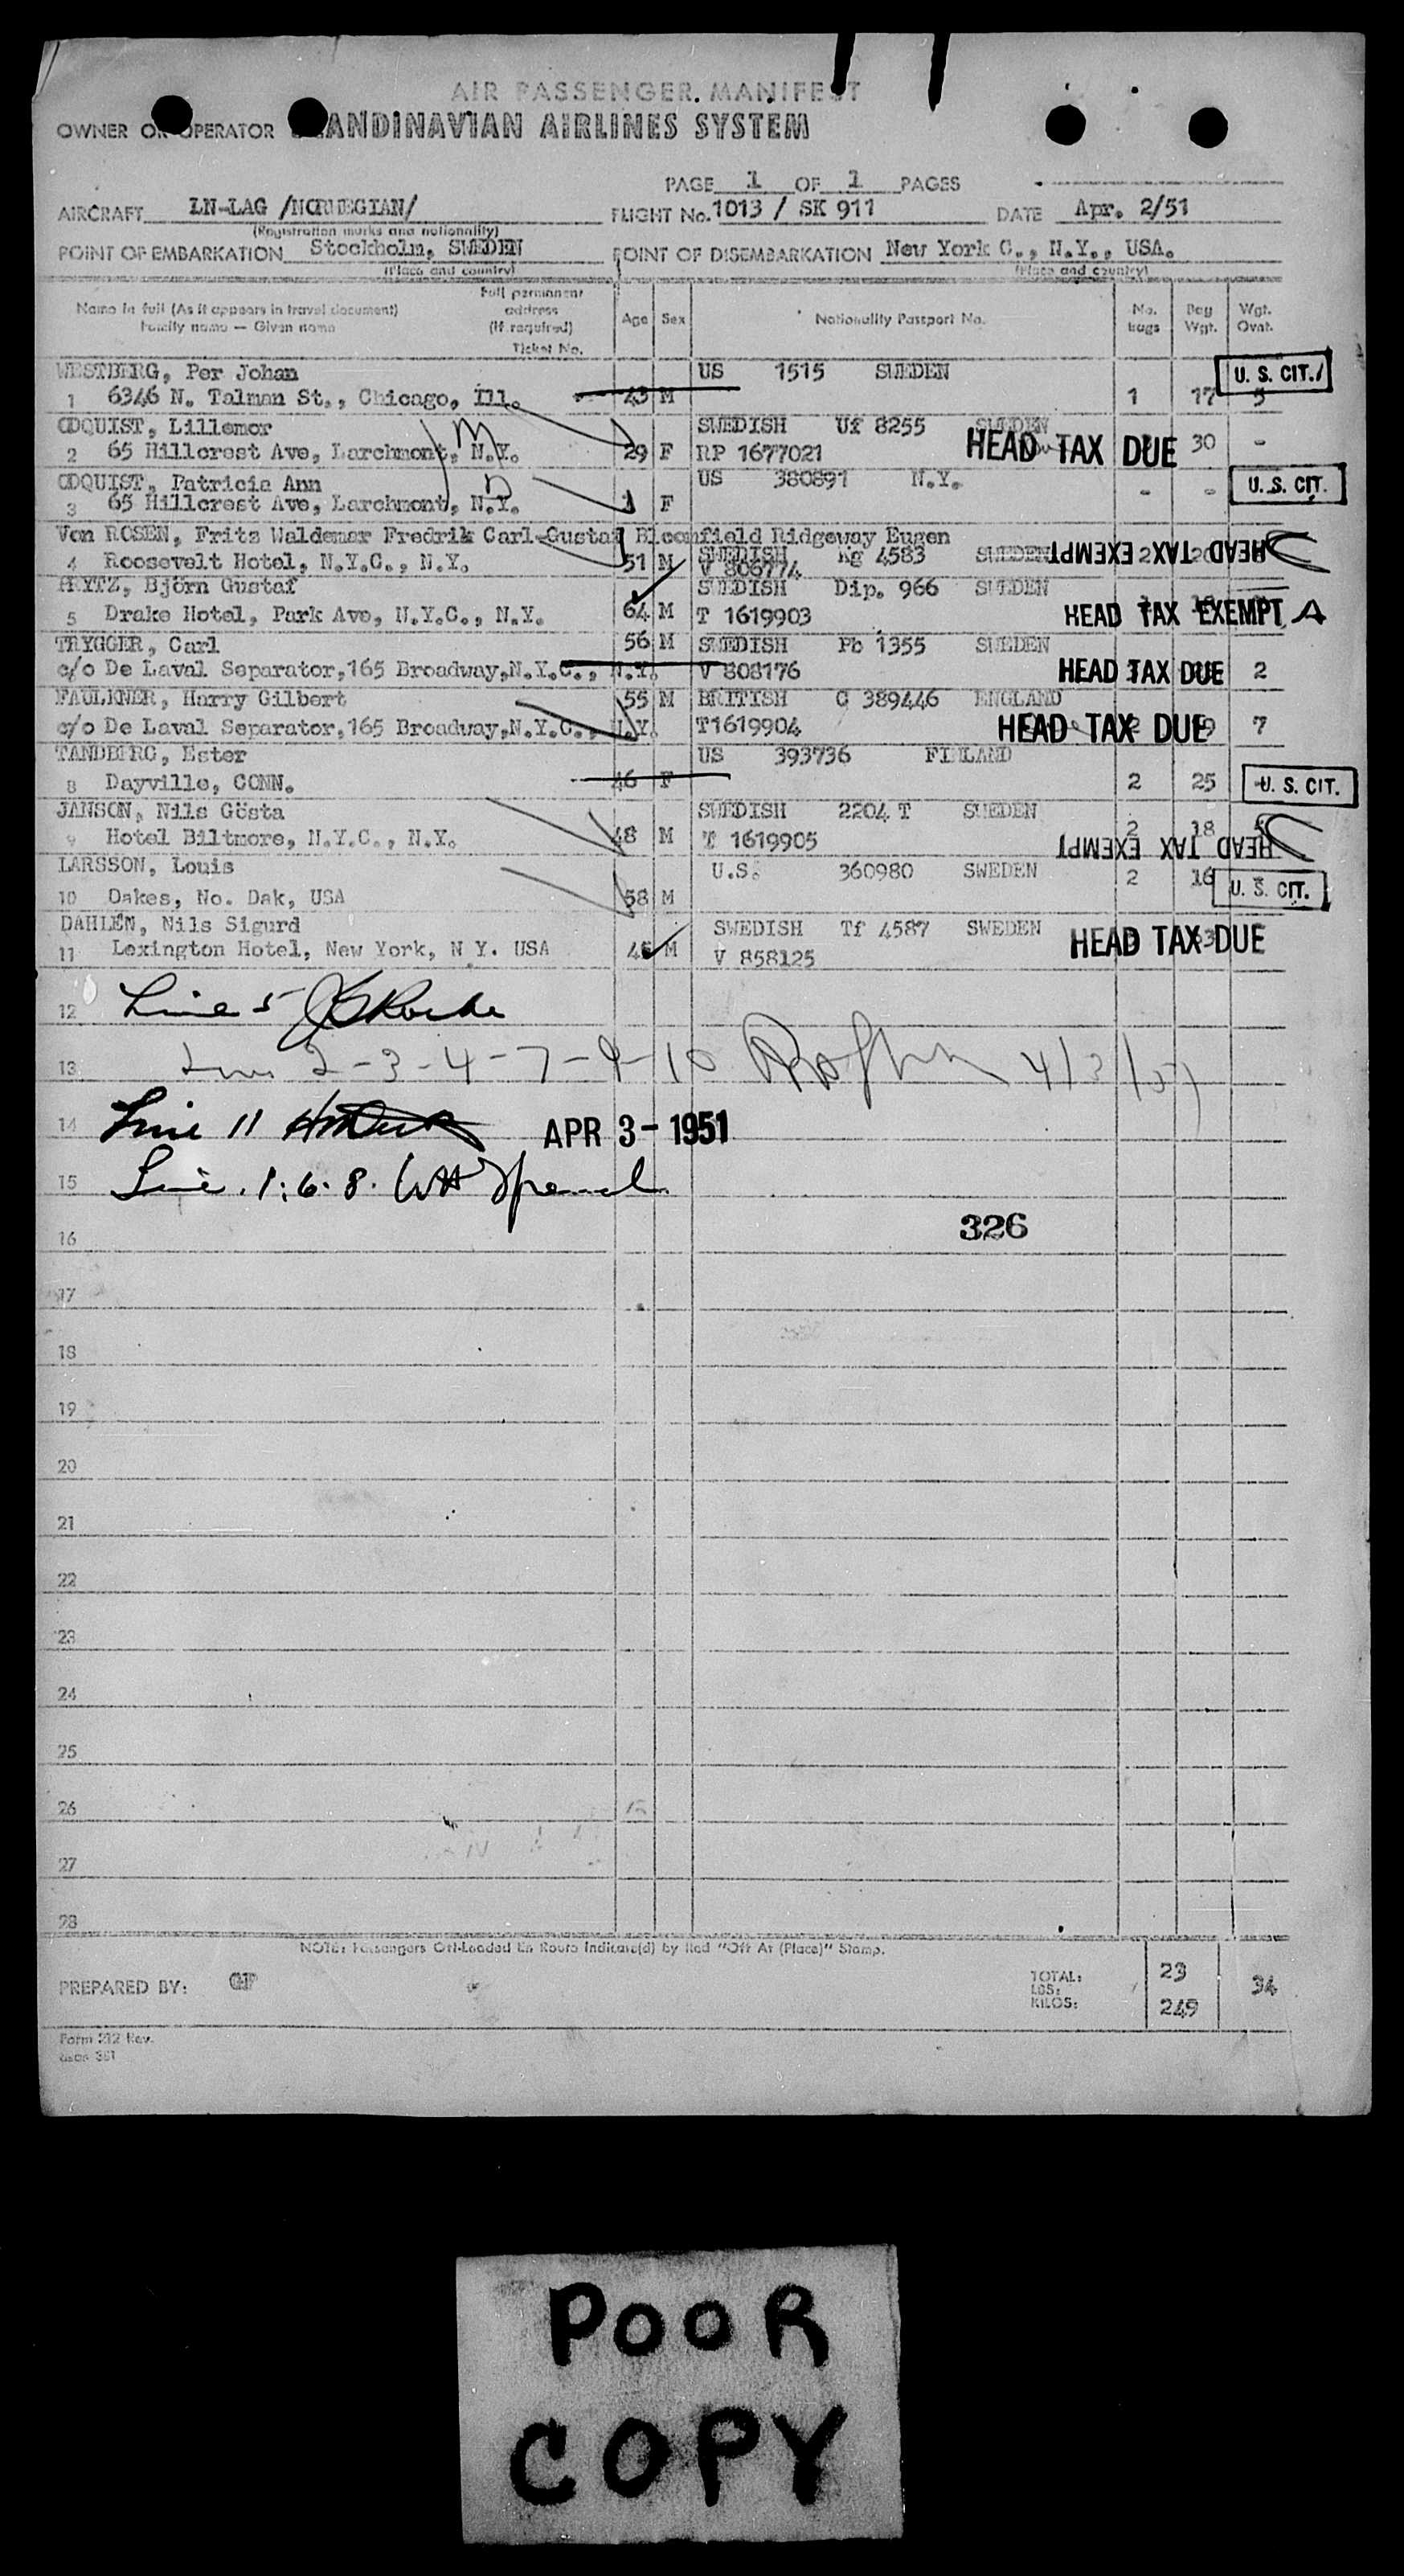 AIR PASSENGER MANIFEST
OWNER OR OPERATOR SCANDINAVIAN AIRLINES SYSTEM
PAGE 1 OF 1 PAGES
AIRCRAFT LN-LAG /NORWEGIAN/ FLIGHT No. 1013 / SK 911 DATE Apr. 2/51
(Registration marks and nationality)
POINT OF EMBARKATION Stockholm, SWEDEN POINT OF DISEMBARKATION New York C., N.Y., USA.
(Place and country) (Place and country)
Name in full (As it appears in travel document) Family name — Given name Full permanent address (If required) Ticket No. Age Sex Nationality Passport No. No. bags Bag Wgt. Wgt. Ovwt.
WESTBERG, Per Johan US 1515 SWEDEN U. S. CIT.
1 6346 N. Talman St., Chicago, Ill. 43 M 1 17
ODQUIST, Lillemor SWEDISH Uf 8255 SWEDEN
2 65 Hillcrest Ave, Larchmont, N.Y. 29 F RP 1677021 HEAD TAX DUE 30 -
ODQUIST, Patricia Ann US 380891 N.Y.
3 65 Hillcrest Ave, Larchmont, N.Y. 1 F - - U. S. CIT.
Von ROSEN, Fritz Waldemar Fredrik Carl-Gustaf Bloomfield Ridgeway Eugen
SWEDISH Kg 4583 SWEDEN HEAD TAX EXEMPT
4 Roosevelt Hotel, N.Y.C., N.Y. 51 M V 806774
PRYTZ, Björn Gustaf SWEDISH Dip. 966 SWEDEN
5 Drake Hotel, Park Ave, N.Y.C., N.Y. 64 M T 1619903 HEAD TAX EXEMPT A
TRYGGER, Carl 56 M SWEDISH Pb 1355 SWEDEN
c/o De Laval Separator,165 Broadway,N.Y.C., N.Y. V 808176 HEAD TAX DUE 2
FAULKNER, Harry Gilbert 55 M BRITISH C 389446 ENGLAND
c/o De Laval Separator,165 Broadway,N.Y.C., N.Y. T1619904 HEAD TAX DUE 7
TANDBERG, Ester US 393736 FINLAND
8 Dayville, CONN. 46 F 2 25 U. S. CIT.
JANSON, Nils Gösta SWEDISH 2204 T SWEDEN
9 Hotel Biltmore, N.Y.C., N.Y. 48 M T 1619905 2 18 HEAD TAX EXEMPT
LARSSON, Louis U.S. 360980 SWEDEN 2 16
10 Oakes, No. Dak, USA 58 M U. S. CIT.
DAHLÉN, Nils Sigurd SWEDISH Tf 4587 SWEDEN
11 Lexington Hotel, New York, N Y. USA M V 858125 HEAD TAX DUE
12 Line 5
13 Lines 2-3-4-7-9-10
14 Line 11 APR 3-1951
15 Line 1.6.8.
326
16
17
18
19
20
21
22
23
24
25
26
27
28
NOTE: Passengers Off-Loaded En Route Indicate(d) by Red "Off At (Place)" Stamp.
PREPARED BY: GF TOTAL: LBS: KILOS: 23 249 34
Form 212 Rev.
POOR
COPY